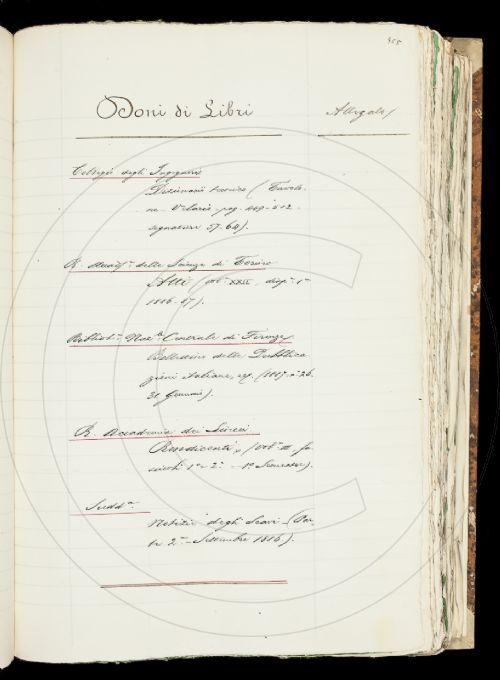 Doni di Libri
Allegati
Collegio degli Ingegneri
Dizionario tecnico (Tavola-
signature 57-64).
R. Accad.ª delle Scienze di Torino
Atti (vol. XXII, disp. 1ª
1886-87).
Bibliot.ª Naz.ª Centrale di Firenze
Bollettino delle Pubblica
zioni italiane, (1887 nº 26.
31 Gennaio).
R. Accademia dei Lincei
Rendiconti, (vol. III fa-
scicoli 1º e 2º - 1º Semestre).
Sudd.ª
Notizie degli Scavi (Settembre 1886).